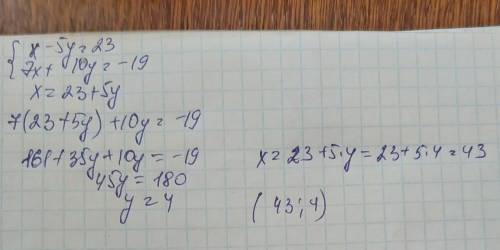 { x - 5y = 23
7x + 10y = -19
x = 23 + 5y
7(23 + 5y) + 10y = -19
161 + 35y + 10y = -19
45y = 180
y = 4
x = 23 + 5·y = 23 + 5·4 = 43
(43; 4)